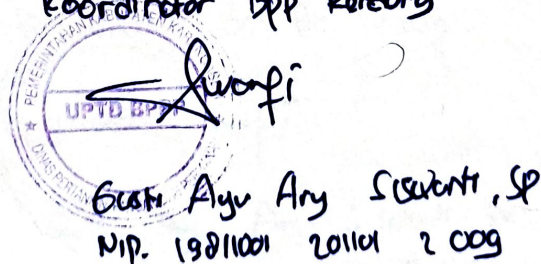 Koordinator BPP
PEMERINTAHAN
UPTD BPP
DINAS
Gusti Ayu Ary Siswanti, SP
NIP. 19811001 201101 2 009